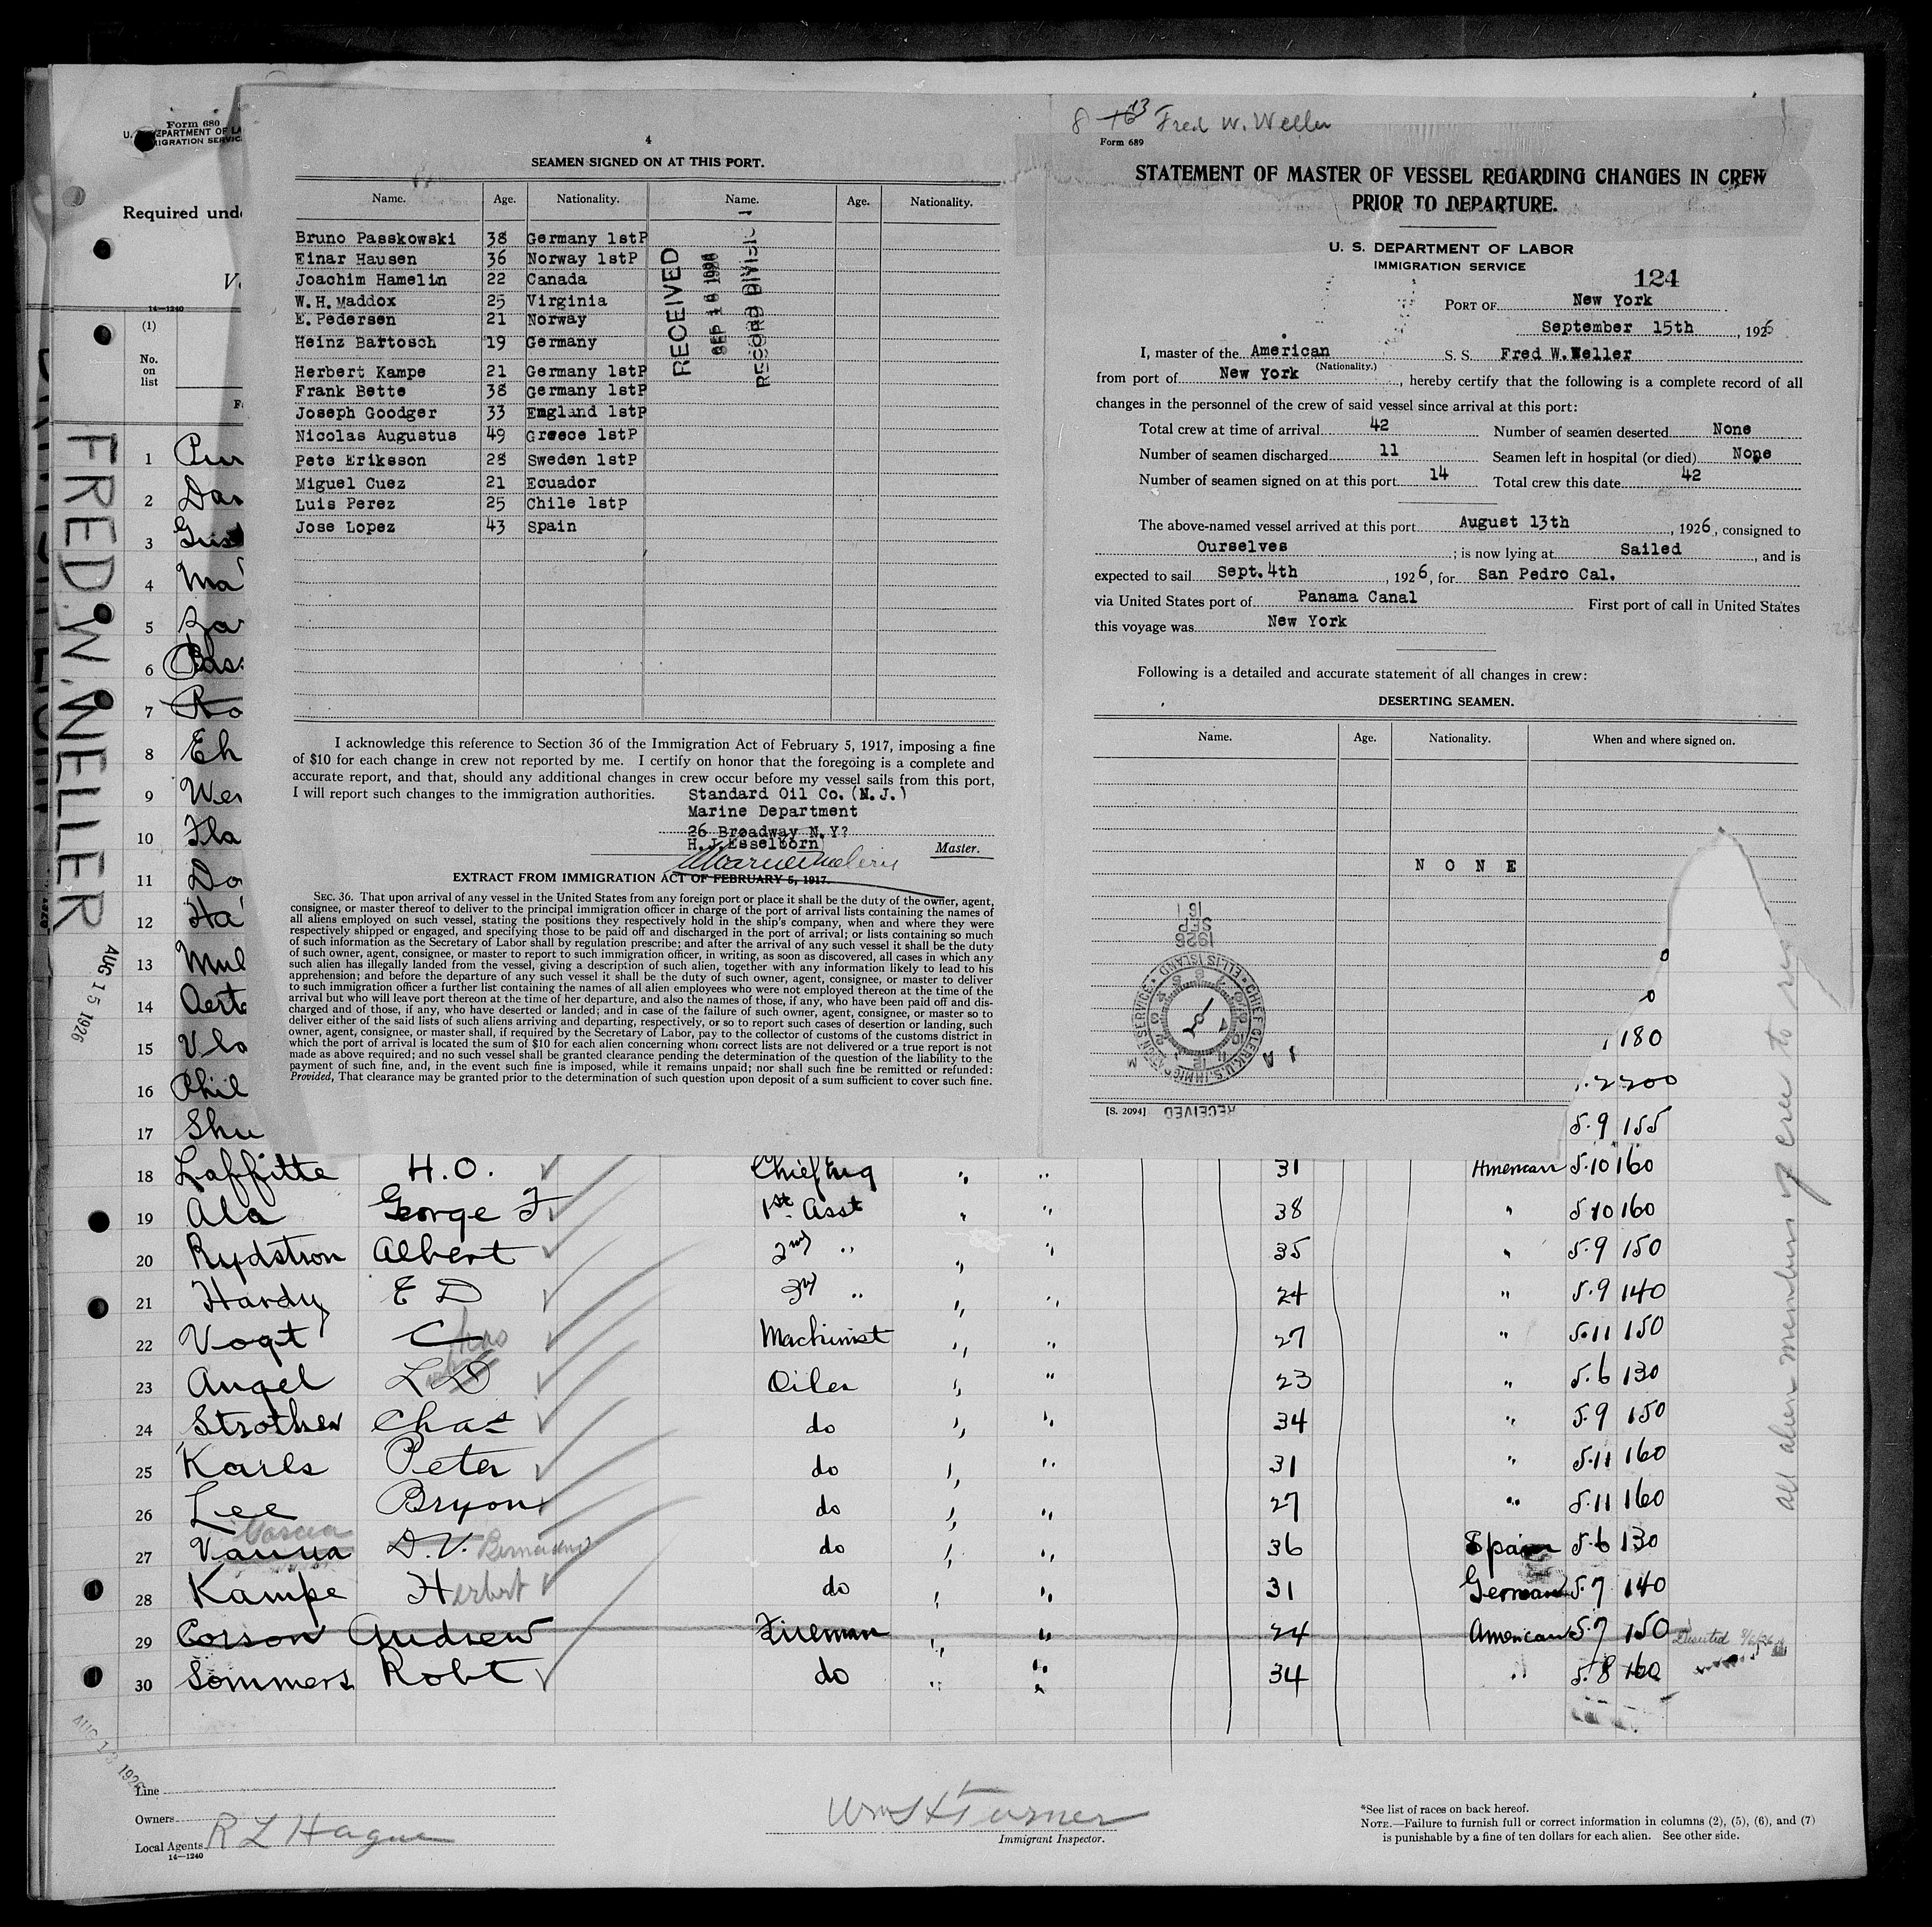 Form 680
U. S. DEPARTMENT OF LA
IMMIGRATION SERVICE
Required unde
14—1240
(1)
No.
on
list
FRED. W. WELLER
AUG 15 1926
4
SEAMEN SIGNED ON AT THIS PORT.
Name. Age. Nationality. Name. Age. Nationality.
Bruno Passkowski 38 Germany 1stP
Einar Hausen 36 Norway 1stP
Joachim Hamelin 22 Canada
W.H.Maddox 25 Virginia
E.Pedersen 21 Norway
Heinz Bartosch 19 Germany
Herbert Kampe 21 Germany 1stP
Frank Bette 38 Germany 1stP
Joseph Goodger 33 England 1stP
Nicolas Augustus 49 Greece 1stP
Pete Eriksson 28 Sweden 1stP
Miguel Cuez 21 Ecuador
Luis Perez 25 Chile 1stP
Jose Lopez 43 Spain
RECEIVED
SEP 16 1926
RECORD DIVISION
I acknowledge this reference to Section 36 of the Immigration Act of February 5, 1917, imposing a fine
of $10 for each change in crew not reported by me. I certify on honor that the foregoing is a complete and
accurate report, and that, should any additional changes in crew occur before my vessel sails from this port,
I will report such changes to the immigration authorities. Standard Oil Co.(N.J.)
Marine Department
26 Broadway N.Y?
H.J.Esselborn
Master.
EXTRACT FROM IMMIGRATION ACT OF FEBRUARY 5, 1917.
SEC. 36. That upon arrival of any vessel in the United States from any foreign port or place it shall be the duty of the owner, agent,
consignee, or master thereof to deliver to the principal immigration officer in charge of the port of arrival lists containing the names of
all aliens employed on such vessel, stating the positions they respectively hold in the ship's company, when and where they were
respectively shipped or engaged, and specifying those to be paid off and discharged in the port of arrival; or lists containing so much
of such information as the Secretary of Labor shall by regulation prescribe; and after the arrival of any such vessel it shall be the duty
of such owner, agent, consignee, or master to report to such immigration officer, in writing, as soon as discovered, all cases in which any
such alien has illegally landed from the vessel, giving a description of such alien, together with any information likely to lead to his
apprehension; and before the departure of any such vessel it shall be the duty of such owner, agent, consignee, or master to deliver
to such immigration officer a further list containing the names of all alien employees who were not employed thereon at the time of the
arrival but who will leave port thereon at the time of her departure, and also the names of those, if any, who have been paid off and dis-
charged and of those, if any, who have deserted or landed; and in case of the failure of such owner, agent, consignee, or master so to
deliver either of the said lists of such aliens arriving and departing, respectively, or so to report such cases of desertion or landing, such
owner, agent, consignee, or master shall, if required by the Secretary of Labor, pay to the collector of customs of the customs district in
which the port of arrival is located the sum of $10 for each alien concerning whom correct lists are not delivered or a true report is not
made as above required; and no such vessel shall be granted clearance pending the determination of the question of the liability to the
payment of such fine, and, in the event such fine is imposed, while it remains unpaid; nor shall such fine be remitted or refunded:
Provided, That clearance may be granted prior to the determination of such question upon deposit of a sum sufficient to cover such fine.
8 13 Fred W. Weller
Form 689
STATEMENT OF MASTER OF VESSEL REGARDING CHANGES IN CREW
PRIOR TO DEPARTURE.
U. S. DEPARTMENT OF LABOR
IMMIGRATION SERVICE
124
PORT OF New York
September 15th , 1926
I, master of the American S. S. Fred W.Weller
(Nationality.)
from port of New York , hereby certify that the following is a complete record of all
changes in the personnel of the crew of said vessel since arrival at this port:
Total crew at time of arrival 42 Number of seamen deserted None
Number of seamen discharged 11 Seamen left in hospital (or died) None
Number of seamen signed on at this port 14 Total crew this date 42
The above-named vessel arrived at this port August 13th , 1926, consigned to
Ourselves ; is now lying at Sailed , and is
expected to sail Sept.4th , 1926, for San Pedro Cal.
via United States port of Panama Canal First port of call in United States
this voyage was New York
Following is a detailed and accurate statement of all changes in crew:
DESERTING SEAMEN.
Name. Age. Nationality. When and where signed on.
N O N E
1926
SEP
16
CHIEF CLERK U.S. IMMIGRATION SERVICE ELLIS ISLAND
RECEIVED
[S. 2094]
1
2
3
4
5
6
7
8 Eh
9 Wer
10 Fla
11 Do
12 Ha
13 Mul
14
15 180
16 Phil 200
17 Shu 5.9 155
18 Laffitte H.O. Chief Eng " " 31 American 5.10 160
19 Ala George F 1st Asst " " 38 " 5.10 160
20 Rydstron Albert 2nd " " " 35 " 5.9 150
21 Hardy E D 3rd " " " 24 " 5.9 140
22 Vogt C Chas Machinist " " 27 " 5.11 150
23 Angel L D Oiler " " 23 " 5.6 130
24 Strother Chas do " " 34 " 5.9 150
25 Karls Peter do " " 31 " 5.11 160
26 Lee Bryon do " " 27 " 5.11 160
27 D.V. do " " 36 Spain 5.6 130
28 Kampe Herbert do " " 31 German 5.7 140
29 Corson Andrew Fireman " " 24 American 5.7 150 Deserted
30 Sommers Robt do " " 34 " 5.8 160
all alien members of crew to
AUG 13 1926
Line
Owners
Local Agents R L Hague
14—1240
Wm H Turner
Immigrant Inspector.
*See list of races on back hereof.
NOTE.—Failure to furnish full or correct information in columns (2), (5), (6), and (7)
is punishable by a fine of ten dollars for each alien. See other side.